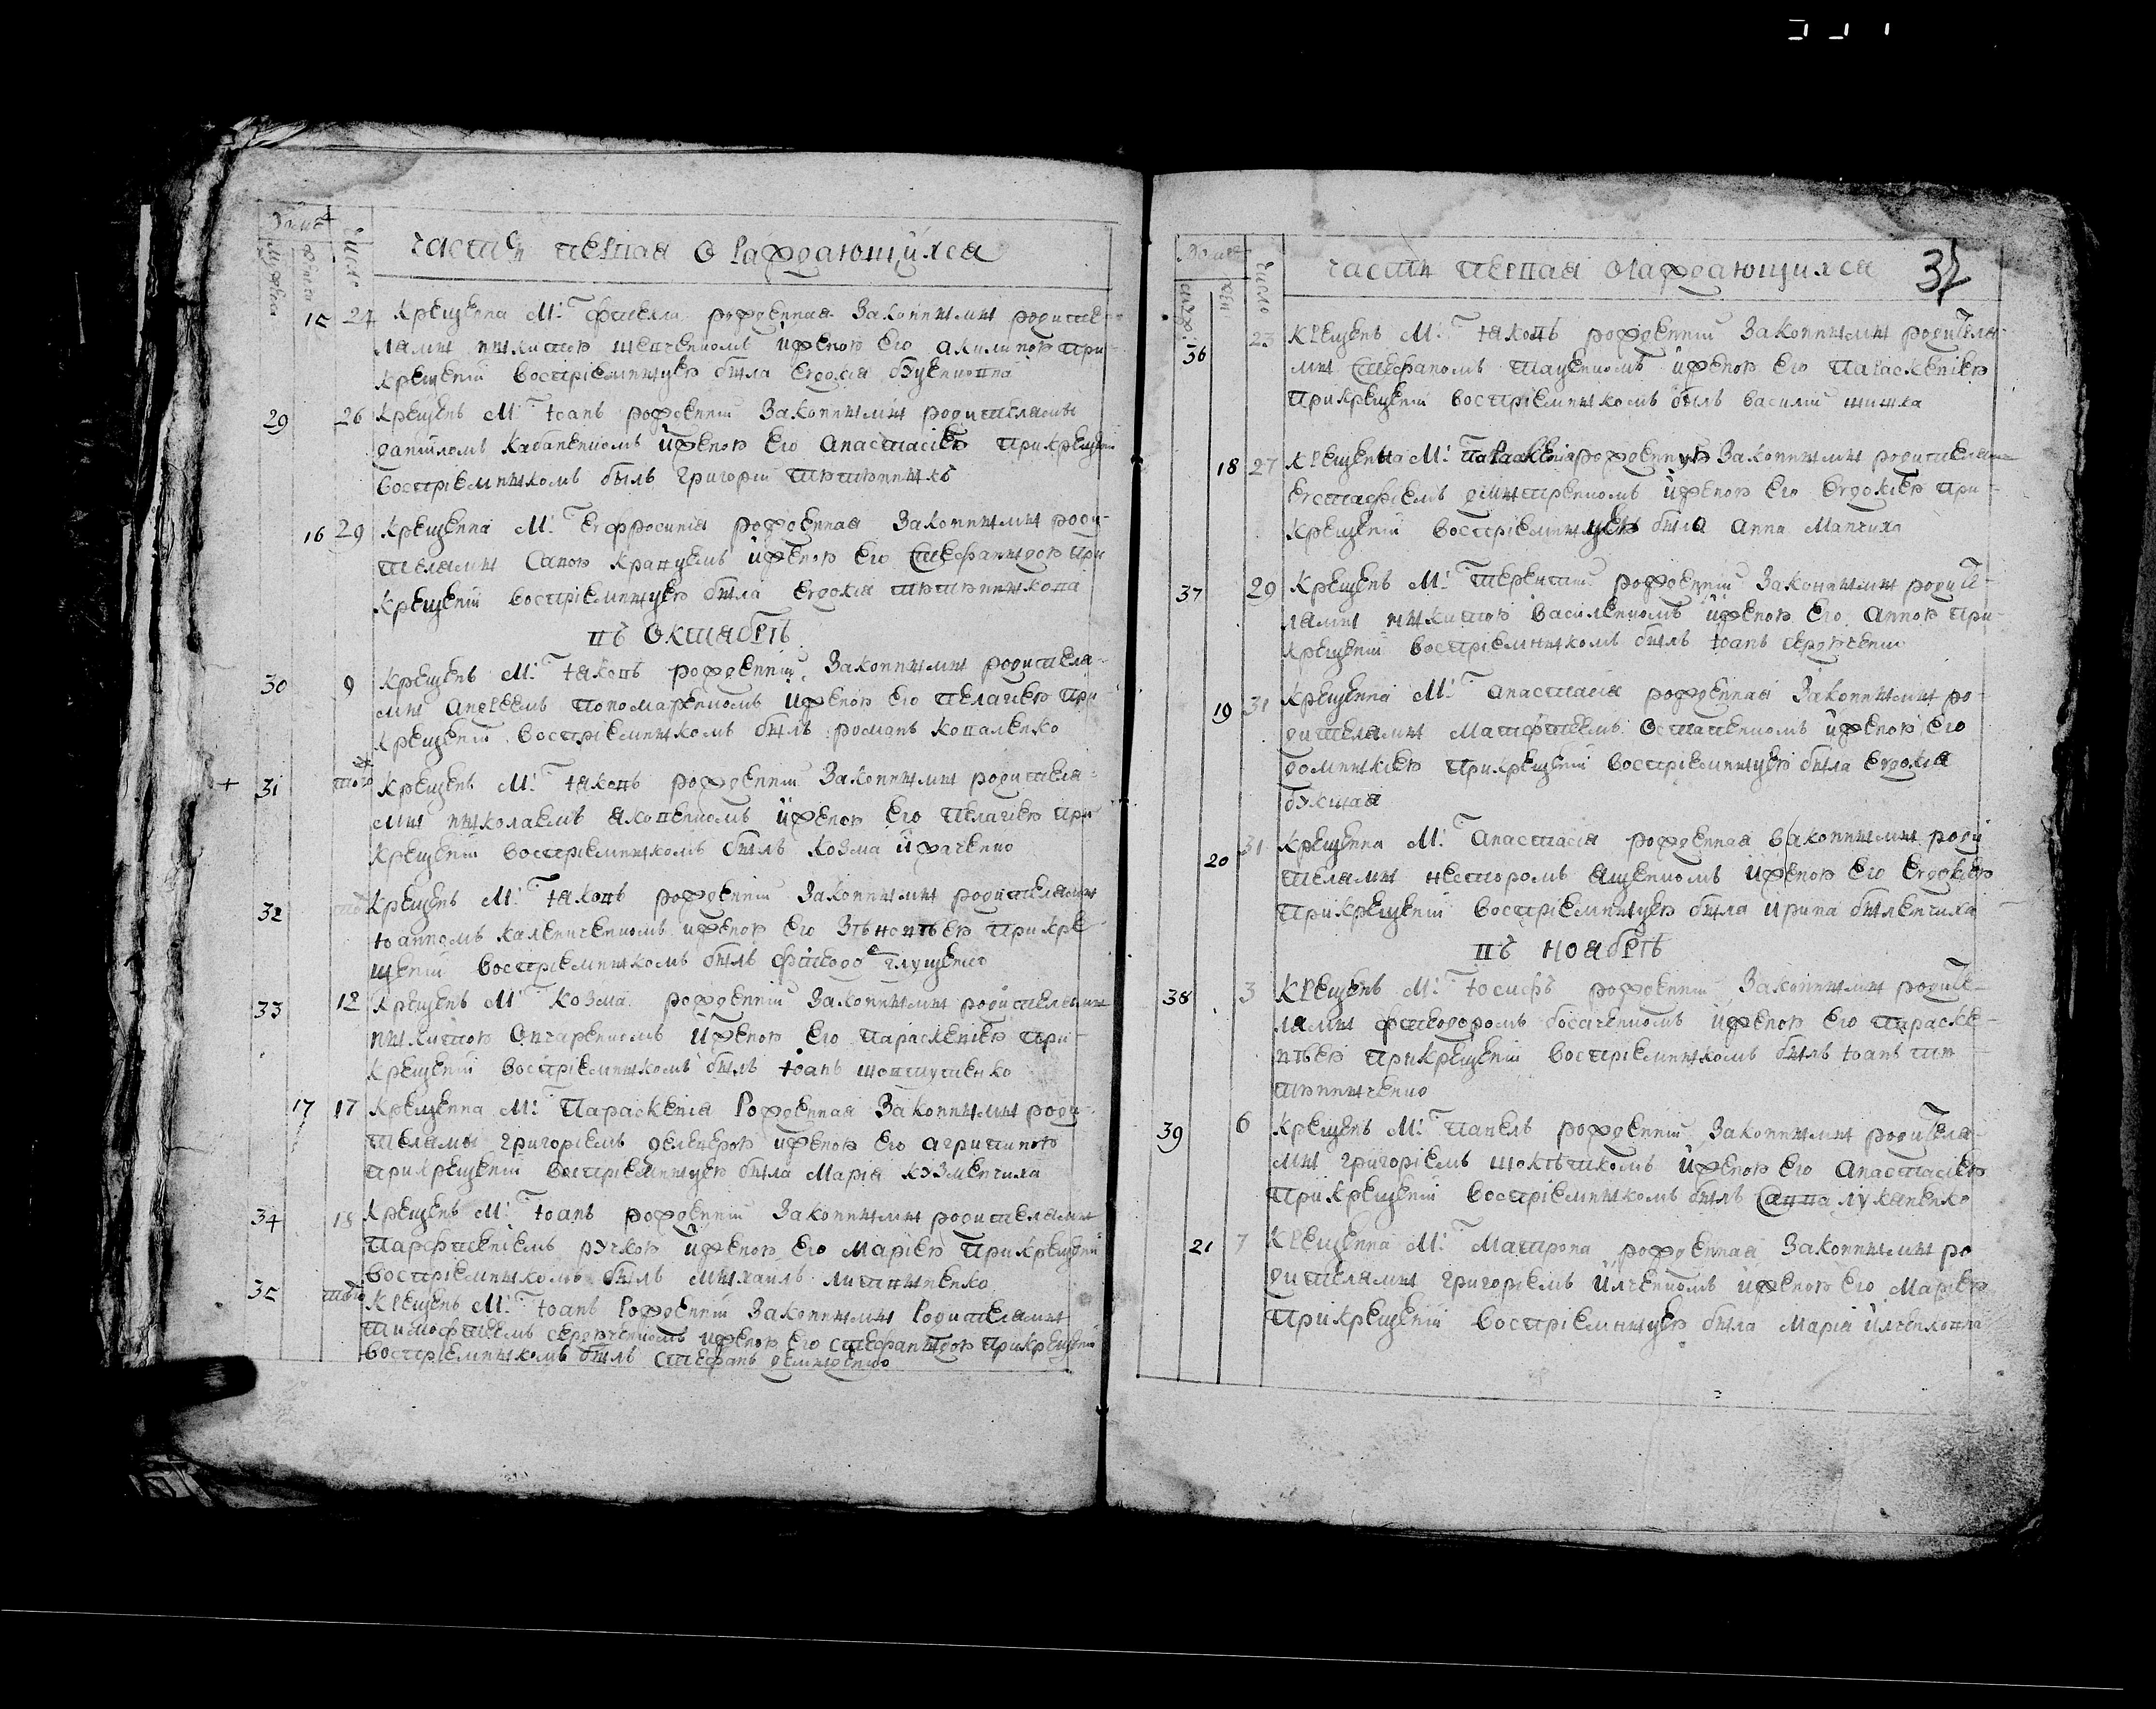 Части первая о раждающихся
Число
15 24 Крещенна М: Фтекла рожденная Законними родите-
лями никитою Шевченкомъ и женою его акилиною При
крещенїи воспрїемницею была евдокїя
29 26 Крещенъ М: Іоанъ рожденнїй Законними родителями
данїиломъ Кабаненкомъ и женою его анастасїею При крещенїи
воспрїемникомъ былъ григорїй Тютюнникъ
16 29 Крещенна М: Евфросинїя рожденная Законними роди-
телями Савою Кравцемъ и женою его Стефанидою при
крещенїи воспрїемницею была евдокїя Тютюнникова
въ Октябрѣ
30 9 Крещенъ М: Іяковъ рожденнїй Законними родителя-
ми андреемъ Пономаренкомъ и женою его Пелагїею При
крещенїи воспрїемникомъ былъ романъ Коваленко
31 тойж Крещенъ М: Іяковъ рожденнїй Законними родителя-
ми николаемъ яковенкомъ и женою его Пелагїею При
крещенїи воспрїемникомъ былъ Козма
32 Крещенъ М: Іяковъ рожденнїй Законними родителями
Іоанномъ Калениченкомъ и женою его Зѣновѣею При кре
щенїи воспрїемникомъ былъ фтеодоръ глущенко
33 12 Крещенъ М: Козма рожденнїй Законними родителями
никитою Овчаренкомъ и женою его Параскевїею При
крещенїи воспрїемникомъ былъ Іоанъ
17 17 Крещенна М: Параскевїя рожденная Законними роди-
телями григорїемъ и женою его агрипиною
при крещенїи воспрїемницею была Марїя Кузменчиха
34 18 Крещенъ М: Іоанъ рожденнїй Законними родителями
Парфтенїемъ ручкою и женою его Марїею При крещенїи
воспрїемникомъ былъ михаилъ литвиненко
35 Крещенъ М: Іоанъ рожденнїй Законними родителями
Тимофтеемъ и женою его стефанидою при крещенїи
воспрїемникомъ былъ Стефанъ демиденко
части первая о раждающихся
37
число
36 23 Крещенъ М: Іяковъ рожденнїй Законними родителя
ми Стефаномъ и женою его Параскевїею
При крещенїи воспрїемникомъ былъ василїй шишка
18 27 Крещенна М: Параскевїя рожденную Законними родителями
евстафїемъ димтренкомъ и женою его евдокїею при-
крещенїи воспрїемницею была анна Манчиха
37 29 Крещенъ М: Терентїй рожденнїй Законними родите-
лями никитою василенкомъ и женою его анною При-
крещенїи воспрїемникомъ былъ Іоанъ
19 31 Крещенна М: анастасїя рожденная Законними ро-
дителями Матфтеемъ Остапенкомъ и женою его
домникїею При крещенїи воспрїемницею была евдокїя

20 31 Крещенна М: Анастасїя рожденная Законними роди
телями несторомъ ященкомъ и женою его евдокїею
При крещенїи воспрїемницею была ирина
въ ноябрѣ
38 3 Крещенъ М: Іосифъ рожденнїй Законними родите-
лями фтеодоромъ босаченкомъ и женою его Параске-
вѣею при крещенїи воспрїемникомъ былъ Іоанъ тю
тюнниченко
39 6 Крещенъ М: Павелъ рожденнїй Законними родителя-
ми григорїемъ и женою его анастасїею
При крещенїи воспрїемникомъ былъ Савва лукяненко
21 7 Крещенна М: Матрона рожденная Законними ро
дителями григорїемъ илченкомъ и женою его Марїею
При крещенїи воспрїемницею была Марїя илченкова